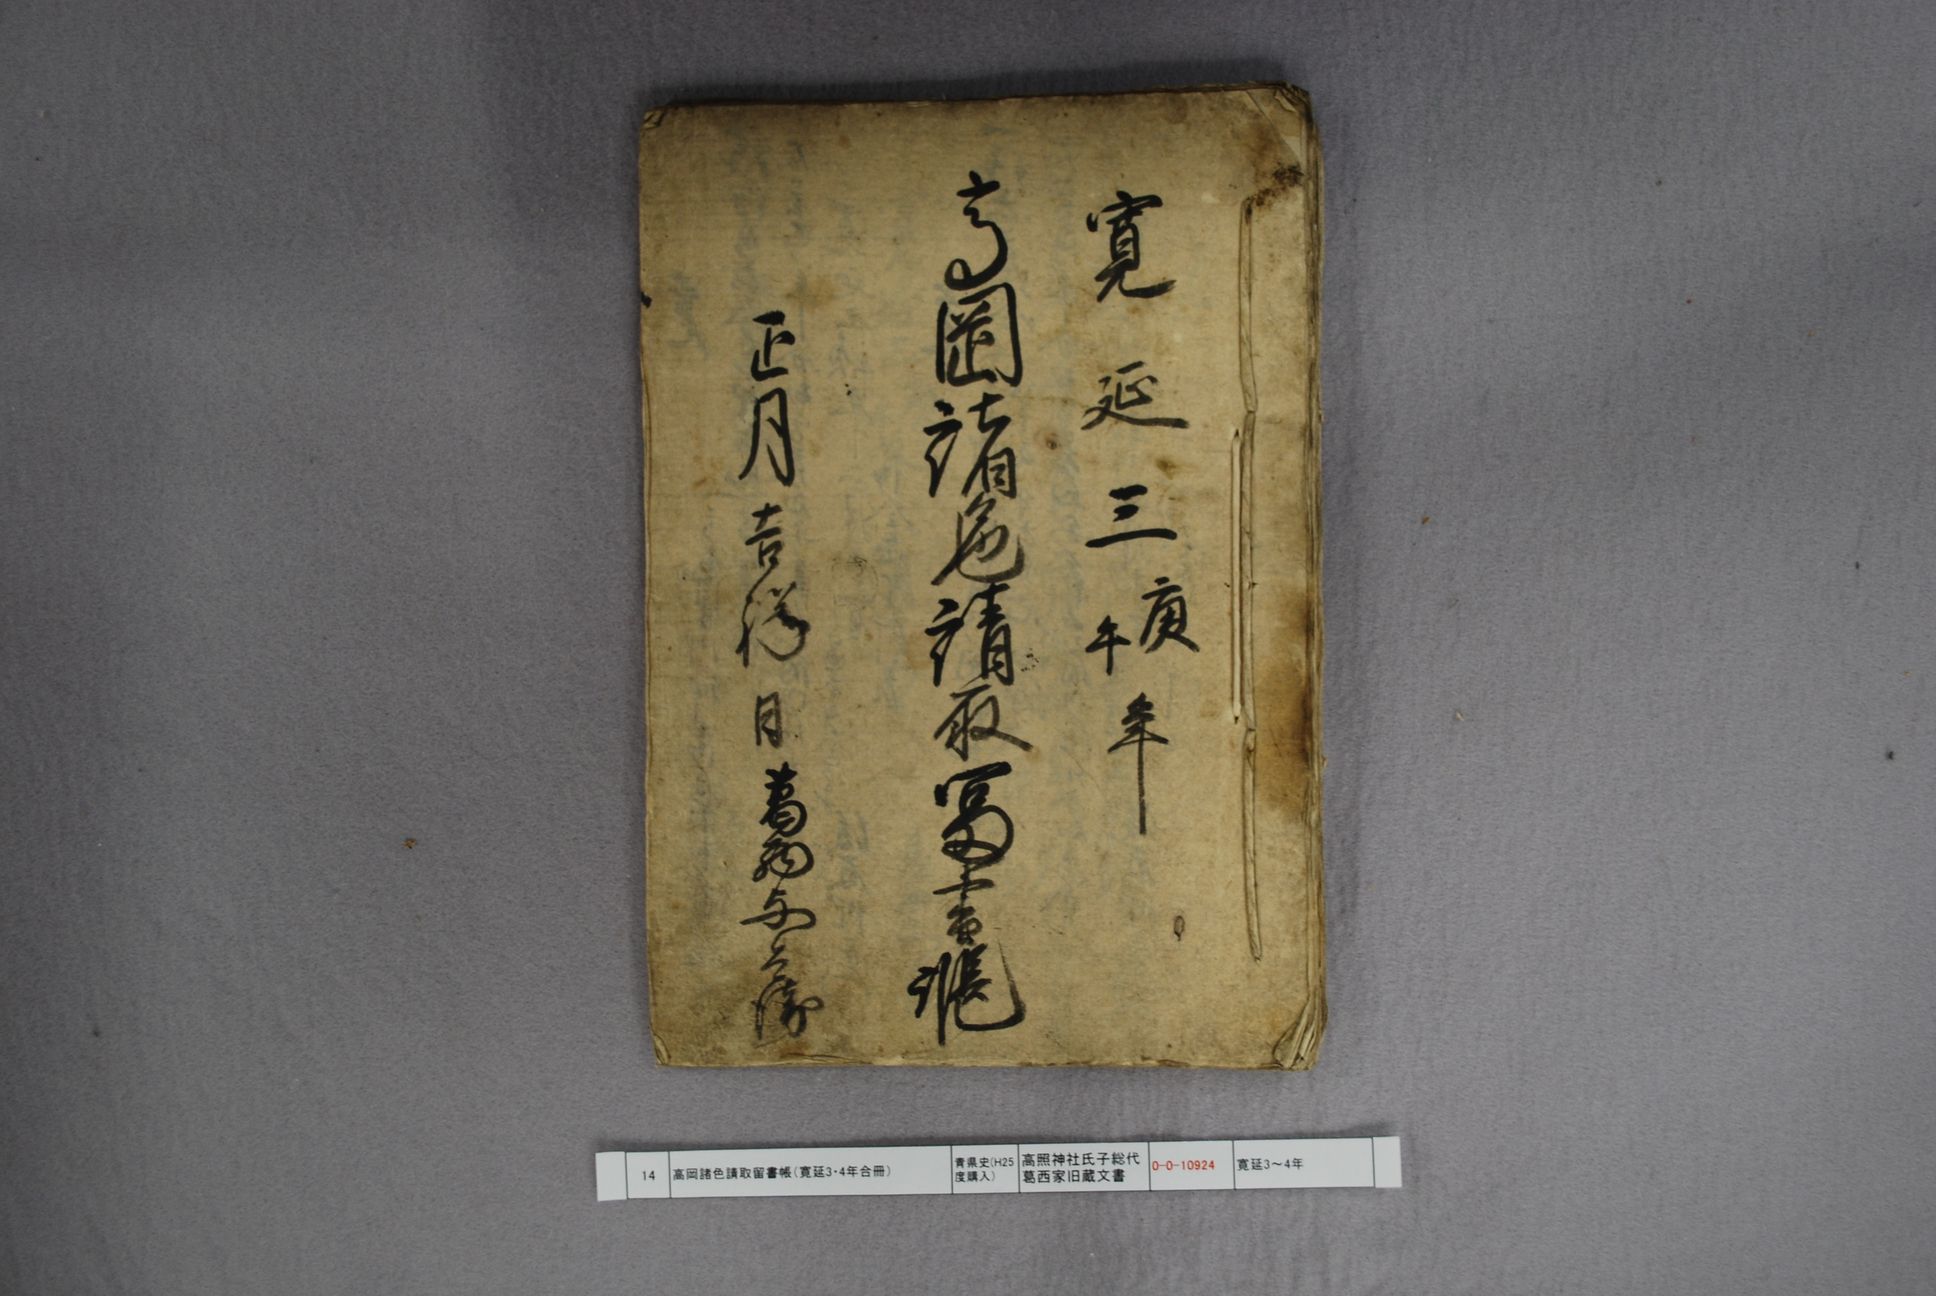 寛延三庚午年
高岡諸色請取留書帳
正月吉祥日
葛西与兵衛
14
高岡諸色請取留書帳(寛延3・4年合冊)
青県史(H25
度購入)
高照神社氏子総代
葛西家旧蔵文書
0-0-10924
寛延3～4年